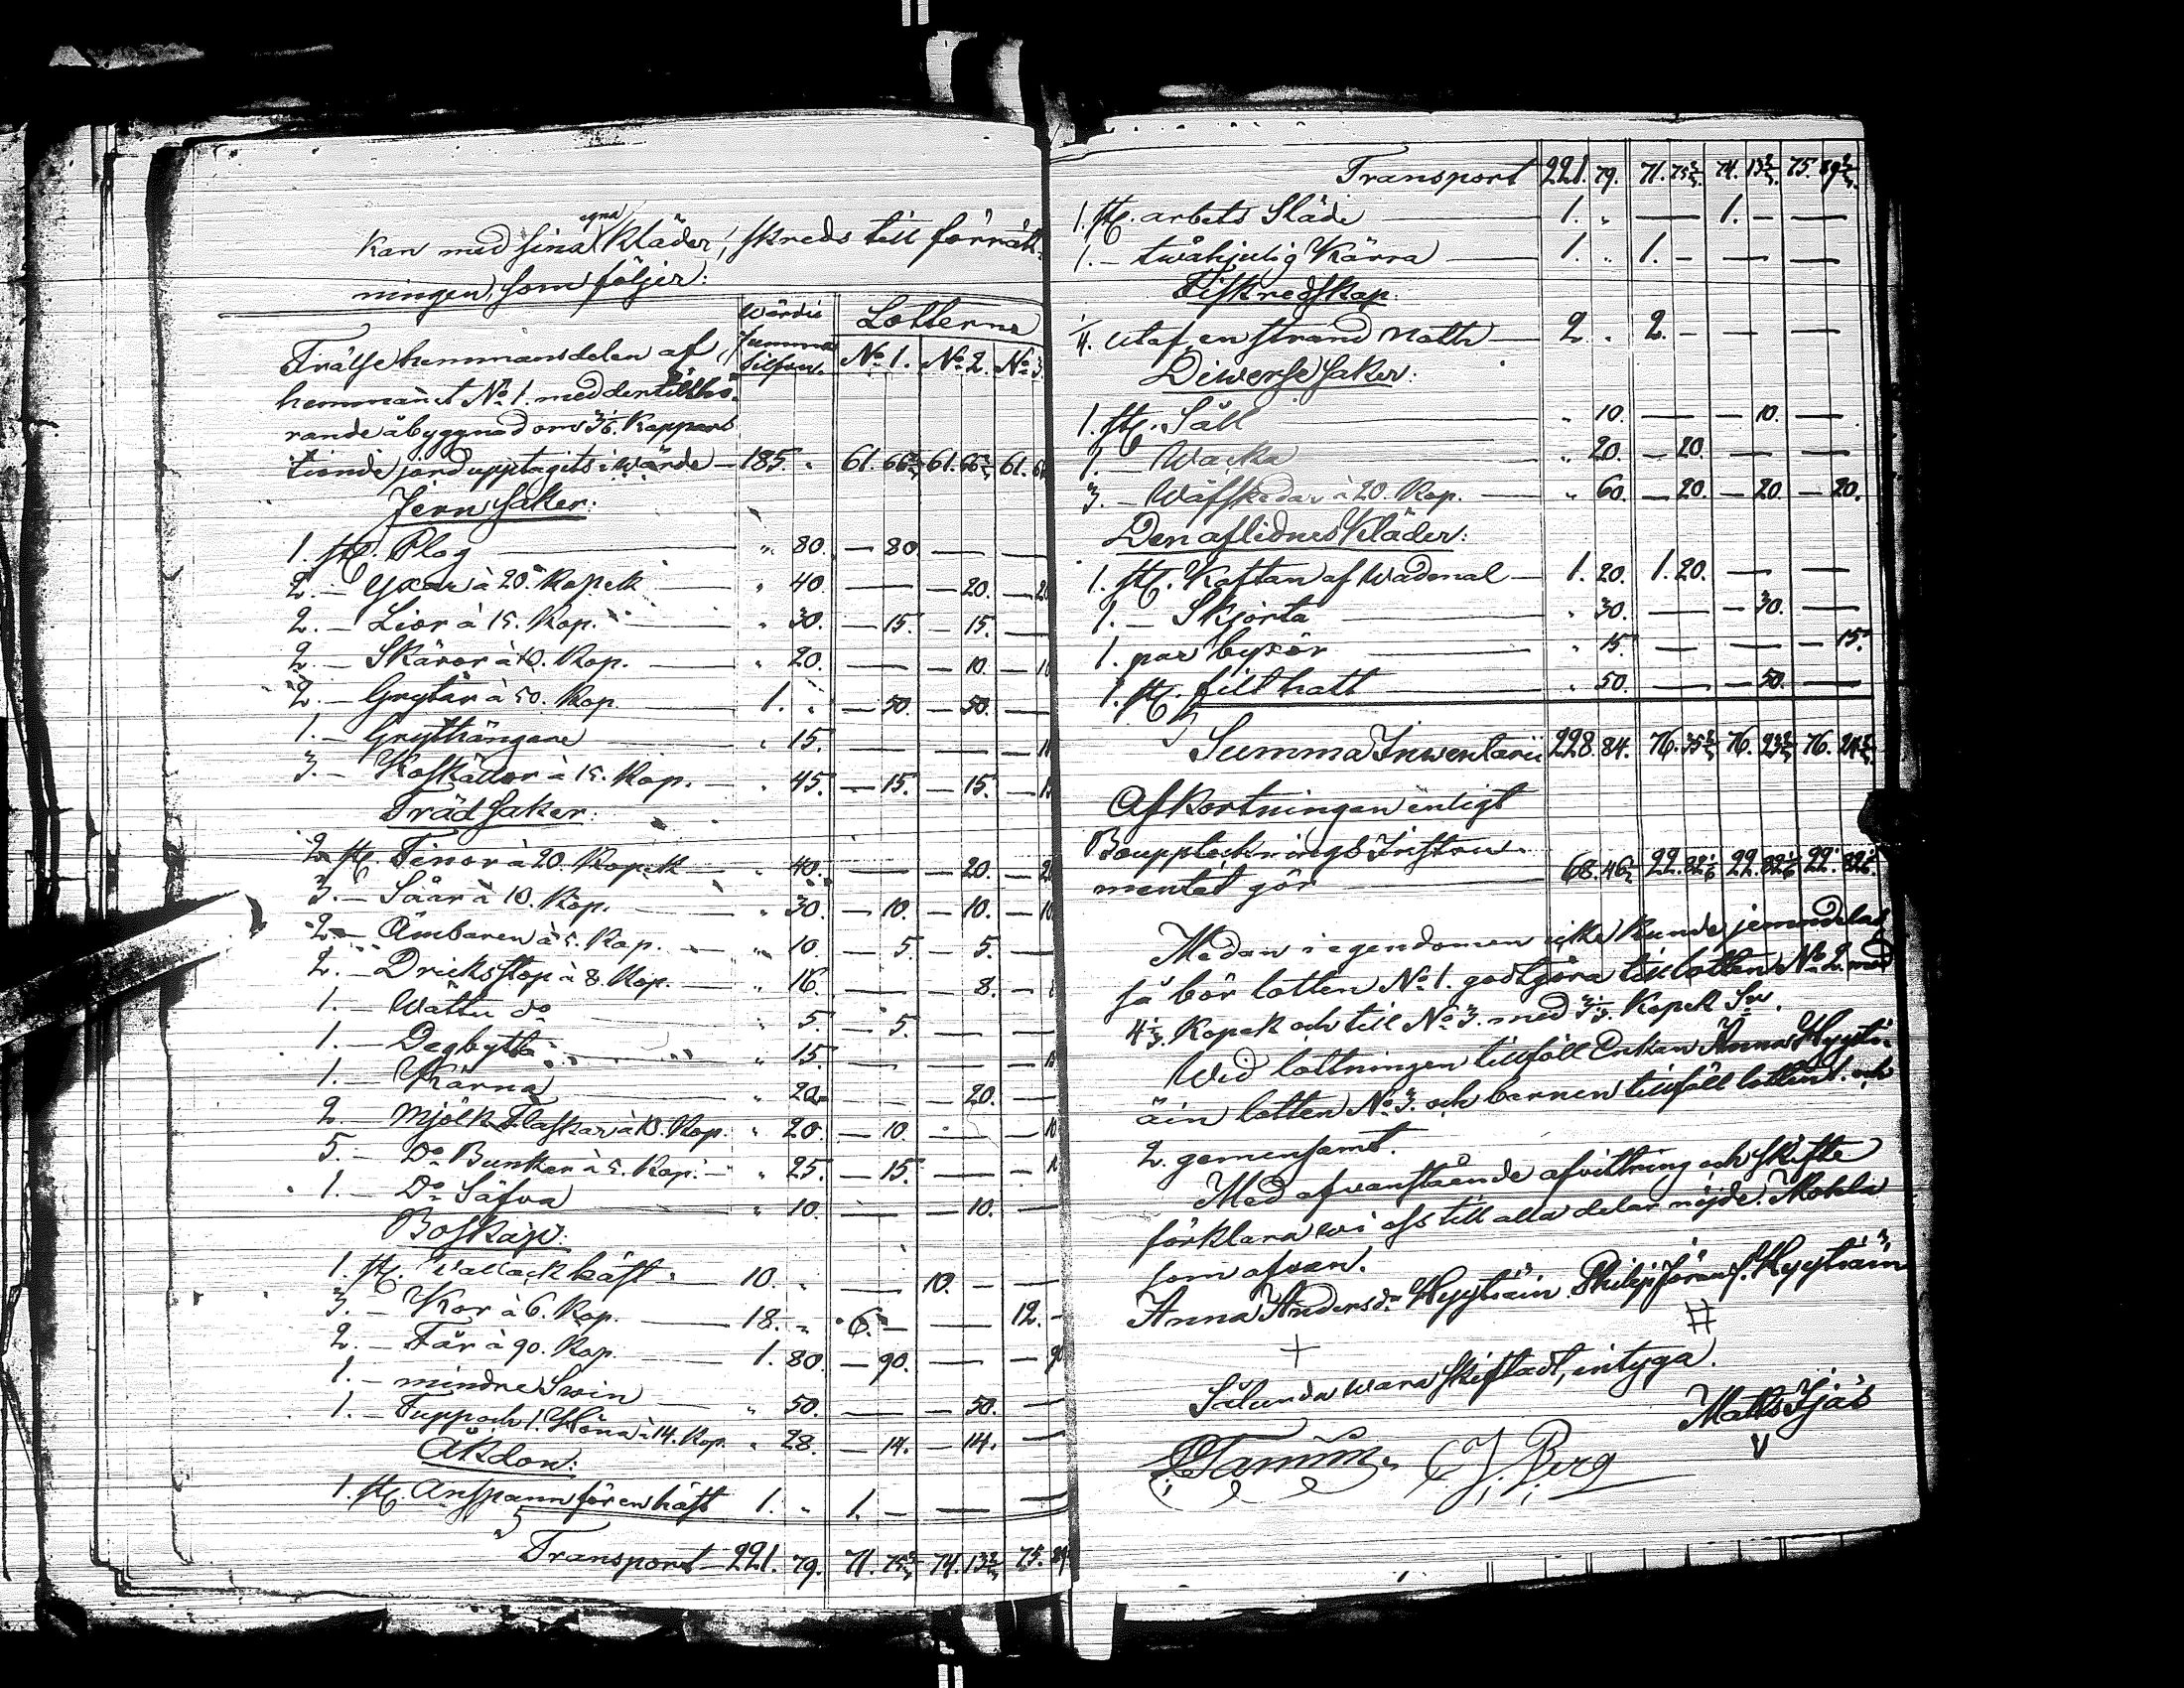 egna
kan med sina Kläder, skreds till förrätt-
ningen, som följer:
Wärde Lotterne
Summa Silfver. No 1. No 2. No 3.
Frälse hemmansdelen af
hemmanet No 1. med dertillhö-
rande åbyggnad om 3 1/6. Kappars
tionde jord upptagits i wärde — 185. " 61. 66 2/3 61. 66 2/3 61.
Jern saker:
1. st. Plog — " 80. — 80. — —
2. — Yxor à 20. Kopek — " 40. — — 20. — 20
2. — Lior à 15. Kop. — " 30. — 15. — 15. —
2. — Skäror à 10. Kop. — " 20. — — 10. — 10
2. — Grytor à 50. Kop. — 1. " — 50. — 50. —
1. — Grythängare — " 15. — — —
3. — Koskällor à 15. Kop. — " 45. — 15. — 15. —
Träd saker:
2. st. Tinor à 20. Kopek — " 40. — — 20. — 20
3. — Såar à 10. Kop. — " 30. — 10. — 10. — 10
2. — Ämbaren à 5. Kop. — " 10. — 5. — 5. —
2. — Dricksstop à 8. Kop. — " 16. — — 8. —
1. — Wattu do " 5. — 5. — —
1. — Degbytta " 15. — — —
1. — Kärna " 20. — — 20. —
2. — Mjölk Flaskar à 10. Kop. " 20. — 10. — — 10
5. — Do Bunkar à 5. Kop. — " 25. — 15. — —
1. — Do Säfva " 10. — — 10. —
Boskap:
1. st. Vallack häst — 10. " — 10. — —
3. — Kor à 6. Rop. — 18. " 6. — — 12. —
2. — Får à 90. Kop. — 1. 80. — 90. — — 90
1. — mindre Swin — " 50. — — 50. —
1. — Tupp och 1. Höna à 14. Kop. " 28. — 14. — 14. —
Åkdon:
1. st. Anspann för en häst 1. " 1. — — —
Transport — 221. 79. 71. 75 2/3 74. 13 2/3 75. 89
Transport 221. 79. 71. 75 2/3. 74. 13 2/3. 75. 89 2/3.
1. st. arbets Släde — 1. " — 1. — —
1. — twåhjulig Kärra — 1. " 1. — — —
Fiskredskap:
1/4. utaf en strand Noth — 2. " 2. — — —
Diwerse saker:
1. st. Såll — " 10. — — 10. —
1. — Wacka — " 20. — 20. — —
3. — Wäfskedar à 20. Kop. — " 60. — 20. — 20. — 20.
Den aflidnes Kläder:
1. st. Kaftan af Wadmal — 1. 20. 1. 20. — —
1. — Skjorta — " 30. — — 30. —
1. par byxor — " 15. — — — 15.
1. st. filt hatt — " 50. — — 50. —
Summa Inwentarii 228. 84. 76. 35 2/3 76. 23 2/3 76. 24 2/3
Afkortningen enligt
Boupptecknings Instru-
mentet gör — 68. 46 1/2 22. 82 1/6 22. 82 1/6 22. 82 1/6.
Medan i egendomen icke kunde jemndelas,
så bör lotten No 1. godtgöra till lotten No 2. med
4 1/3. Kopek och till No 3. med 3 1/3. Kopek Sr.
Wid lottningen tillföll Enkan Anna Hyyti-
äin lotten No 3. och barnen tillföll lotten 1. och
2. gemensamt.
Med ofvanstående afvittring och skifte
förklara wi oss till alla delar nöjde. Mohla
som ofvan.
Anna Andersdr Hyytiäin Philip Göran s. Hyytiäin
+ #
Sålunda wara skiftadt, intyga.
Matts Ijäs
C J. Berg V